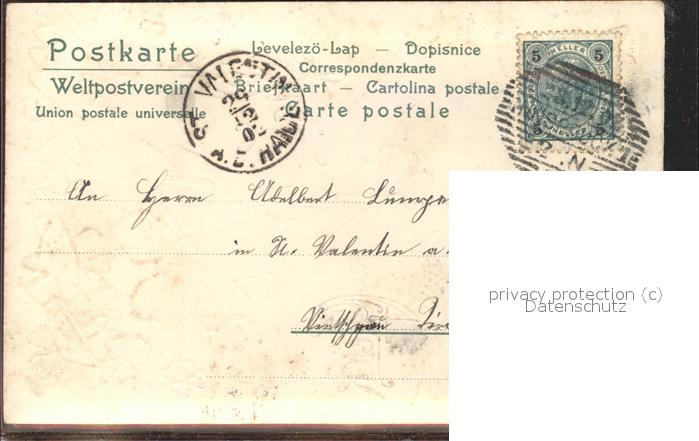 Postkarte
Levelezö-Lap — Dopisnice
Correspondenzkarte
Weltpostverein
Briefkaart — Cartolina postale
Union postale universelle
Carte postale
5 HELLER 5
5 HELLER 5
ST. VALENTIN
A.D. HAIDE
An Herrn Adelbert
in St. Valentin a.
Vintschgau Tiro
privacy protection (c)
Datenschutz